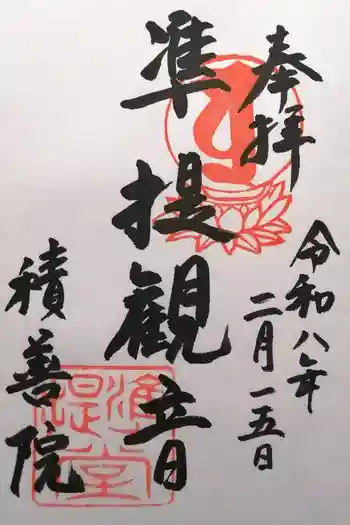 奉拝
令和八年
二月一五日
準提観音
積善院
準提堂